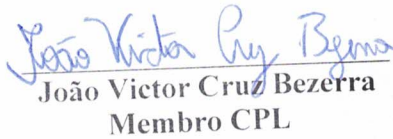 João Victor Cruz Bezerra
João Victor Cruz Bezerra
Membro CPL